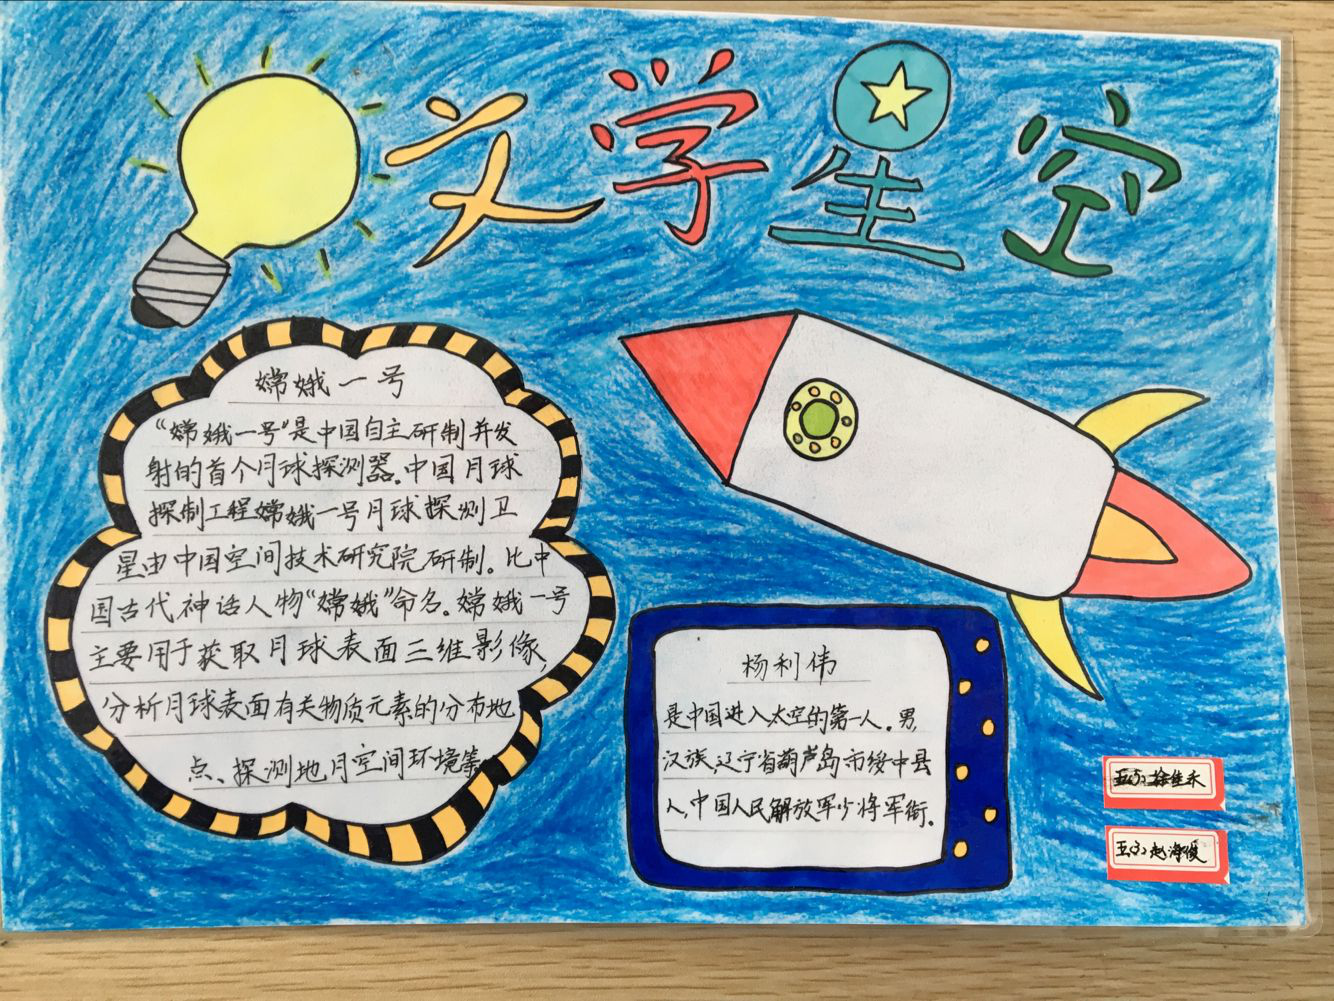 文学星空
嫦娥一号
“嫦娥一号”是中国自主研制并发
射的首个月球探测器。中国月球
探制工程嫦娥一号月球探测卫
星由中国空间技术研究院研制。比中
国古代神话人物“嫦娥”命名。嫦娥一号
主要用于获取月球表面三维影像,
分析月球表面有关物质元素的分布地
点、探测地,月空间环境等
杨利伟
是中国进入太空的第一人。男,
汉族,辽宁省葫芦岛市绥中县
人,中国人民解放军少将军衔。
徐佳永
赵海俊